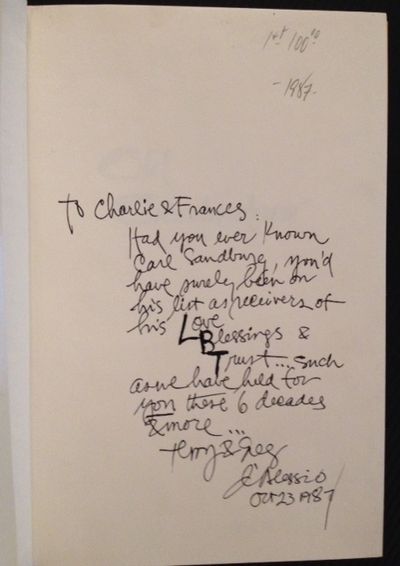 1st 100.00
- 1987 -
To Charlie & Frances:
Had you ever known
Carl Sandburg, you'd
have surely been on
his list as receivers of
his Love
Blessings &
Trust... such
as we have held for
you these 6 decades
& more ...
Terry & Greg
d'Alessio
Oct 23 1987